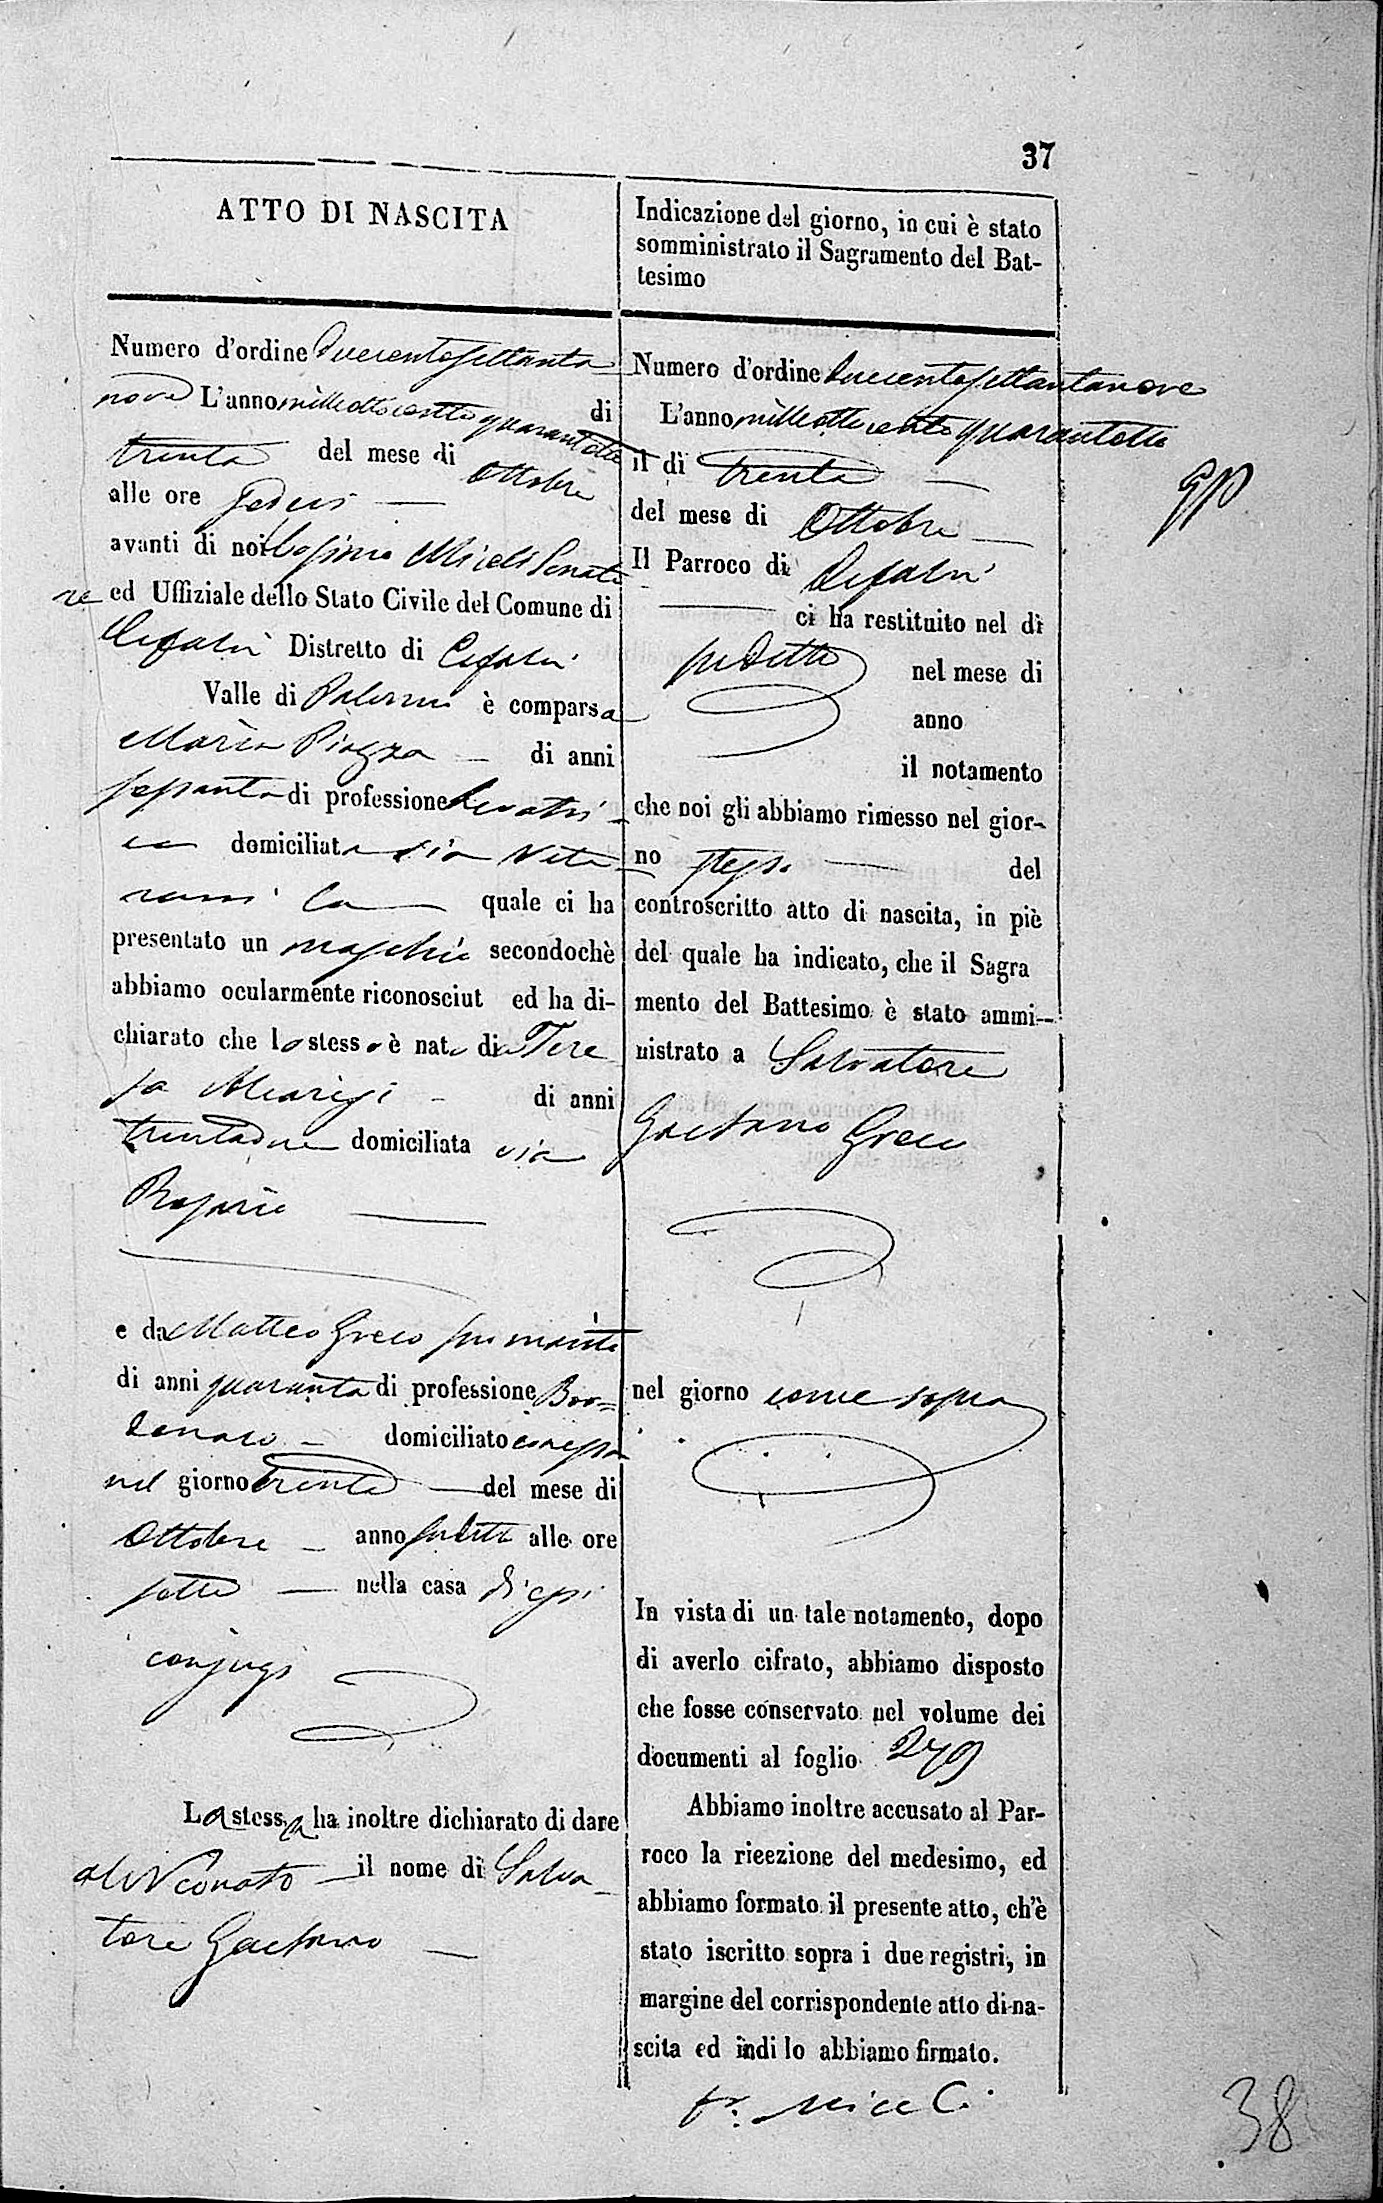 37
ATTO DI NASCITA
Numero d'ordine duecentosettanta
nove L'anno milleottocento quarantotto di
trenta del mese di Ottobre
alle ore sedici
avanti di noi Miceli Senato
re ed Uffiziale dello Stato Civile del Comune di
Cefalù Distretto di Cefalù
Valle di Palermo è comparsa
Maria Piazza di anni
sessanta di professione Levatri
ce domiciliata via Vete
rani La quale ci ha
presentato un maschio secondochè
abbiamo ocularmente riconosciut ed ha di-
chiarato che lo stesso è nato da Tere
sa di anni
trentadue domiciliata via
Rosario
e da Matteo Greco suo marito
di anni quaranta di professione Bor
donaro domiciliato con essa
nel giorno trenta del mese di
Ottobre anno sudetto alle ore
sette nella casa di essi
conjugi
La stessa ha inoltre dichiarato di dare
al Neonato il nome di Salva
tore Gaetano
Indicazione del giorno, in cui è stato
somministrato il Sagramento del Bat-
tesimo
Numero d'ordine duecentosettantanove
L'anno milleottocento quarantotto
il dì trenta
del mese di Ottobre
Il Parroco di Cefalù
ci ha restituito nel dì
sudetto nel mese di
anno
il notamento
che noi gli abbiamo rimesso nel gior-
no stesso del
controscritto atto di nascita, in piè
del quale ha indicato, che il Sagra
mento del Battesimo è stato ammi-
nistrato a Salvatore
Gaetano Greco
nel giorno come sopra
In vista di un tale notamento, dopo
di averlo cifrato, abbiamo disposto
che fosse conservato nel volume dei
documenti al foglio 279
Abbiamo inoltre accusato al Par-
roco la ricezione del medesimo, ed
abbiamo formato il presente atto, ch'è
stato iscritto sopra i due registri, in
margine del corrispondente atto di na-
scita ed indi lo abbiamo firmato.
Miceli
38